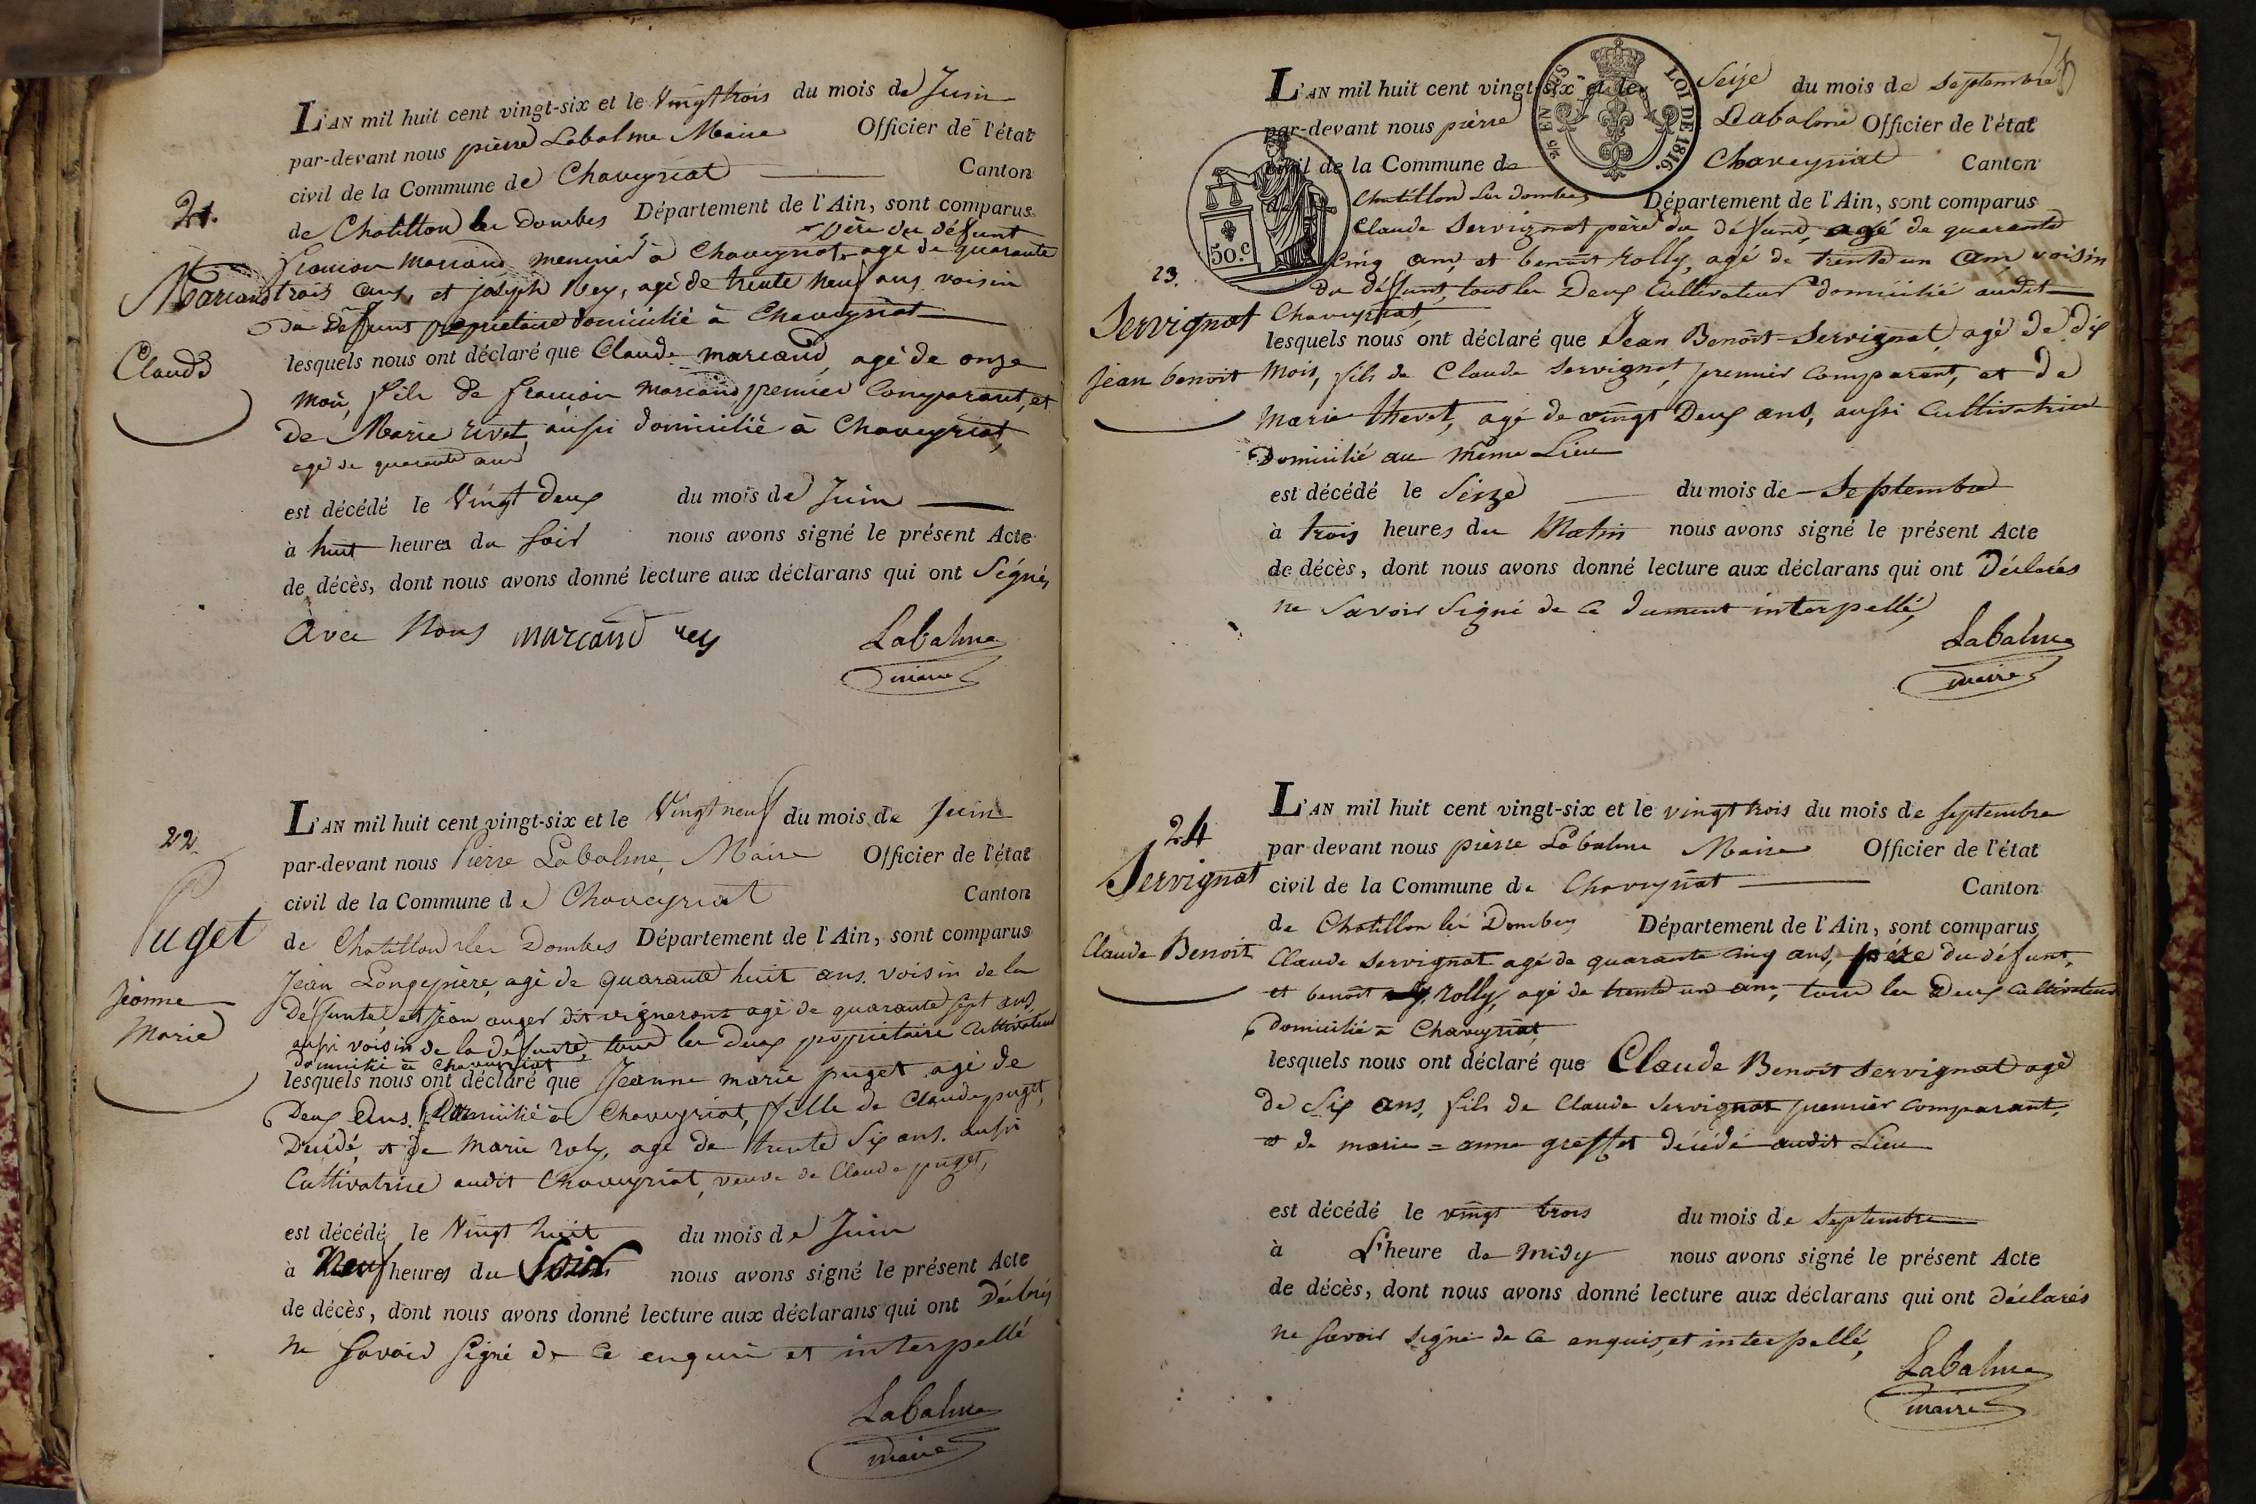 L'AN mil huit cent vingt-six et le Vingt trois du mois de Juin
par-devant nous pierre Labalme Maire Officier de l'état
civil de la Commune de Chaveyriat Canton
de Chatillon les Dombes Département de l'Ain, sont comparus
père du défunt
21.
françois Marcand meunier à Chaveyriat agé de quarante
Marcand
trois ans, et joseph Rey, agé de trente neuf ans voisin
du défunt propriétaire domicilié à Chaveyriat
Claude
lesquels nous ont déclaré que Claude marcand, agé de onze
mois, fils de françois marcand premier Comparant, et
de Marie rivet, aussi domicilié à Chaveyriat,
agé de quarante ans
est décédé le Vingt deux du mois de Juin
à huit heures du soir nous avons signé le présent Acte
de décès, dont nous avons donné lecture aux déclarans qui ont Signés
Avec Nous marcand rey Labalme
maire
L'AN mil huit cent vingt-six et le Vingt neuf du mois de Juin
22.
par-devant nous Pierre Labalme, Maire Officier de l'état
civil de la Commune de Chaveyriat Canton
Puget
de Chatillon les Dombes Département de l'Ain, sont comparus
Jean Longepierre, agé de quarante huit ans. voisin de la
Jeanne
Marie
défunte, et jean auger dit vigneront agé de quarante sept ans,
aussi voisin de la défunte, tous les Deux propriétaire Cultivateur
domicilié à Chaveyriat
lesquels nous ont déclaré que Jeanne marie puget agé de
Deux Ans. Domicilié à Chaveyriat, fille de Claude puget,
Décidé, et de Marie roly, agé de trente Six ans. aussi
Cultivatrice audit Chaveyriat, veuve de Claude puget,
est décédé le Vingt huit du mois de Juin
à Neuf heures du Soir nous avons signé le présent Acte
de décès, dont nous avons donné lecture aux déclarans qui ont Déclarés
ne Savoir Signé de Ce enquis et interpellé
Labalme
maire
76
5/c EN SUS LOI DE 1816.
L'AN mil huit cent vingt-six et le Seize du mois de Septembre
par-devant nous pierre Labalme Officier de l'état
civil de la Commune de Chaveyriat Canton
de Chatillon les Dombes Département de l'Ain, sont comparus
50.c
Claude Servignat père du défunt, agé de quarante
23.
Cinq ans, et benoit rolly, agé de trente un ans voisin
du défunt, tous les Deux Cultivateur domicilié audit
Servignat
Chaveyriat,
lesquels nous ont déclaré que Jean Benoît Servignat, agé de dix
jean benoit
Mois, fils de Claude Servignat, premier Comparant, et de
Marie thevet, agé de vingt Deux ans, aussi Cultivatrice
Domicilié au Même Lieu
est décédé le Seize du mois de Septembre
à trois heures du Matin nous avons signé le présent Acte
de décès, dont nous avons donné lecture aux déclarans qui ont Déclarés
ne Savoir Signé de Ce dument interpellé,
Labalme
maire
L'AN mil huit cent vingt-six et le vingt trois du mois de septembre
24
par-devant nous pierre Labalme Maire Officier de l'état
Servignat
civil de la Commune de Chaveyriat Canton
de Chatillon les Dombes Département de l'Ain, sont comparus
Claude Benoit
Claude Servignat agé de quarante cinq ans, père du défunt,
et benoit rolly, agé de trente un ans, tous les Deux Cultivateur
domicilié à Chaveyriat,
lesquels nous ont déclaré que Claude Benoit Servignat agé
de Six ans, fils de Claude Servignat premier Comparant,
et de marie = anne greffet décédé audit Lieu
est décédé le vingt trois du mois de Septembre
à L'heure de midy nous avons signé le présent Acte
de décès, dont nous avons donné lecture aux déclarans qui ont déclarés
ne savoir signé de Ce enquis, et interpellé,
Labalme
maire